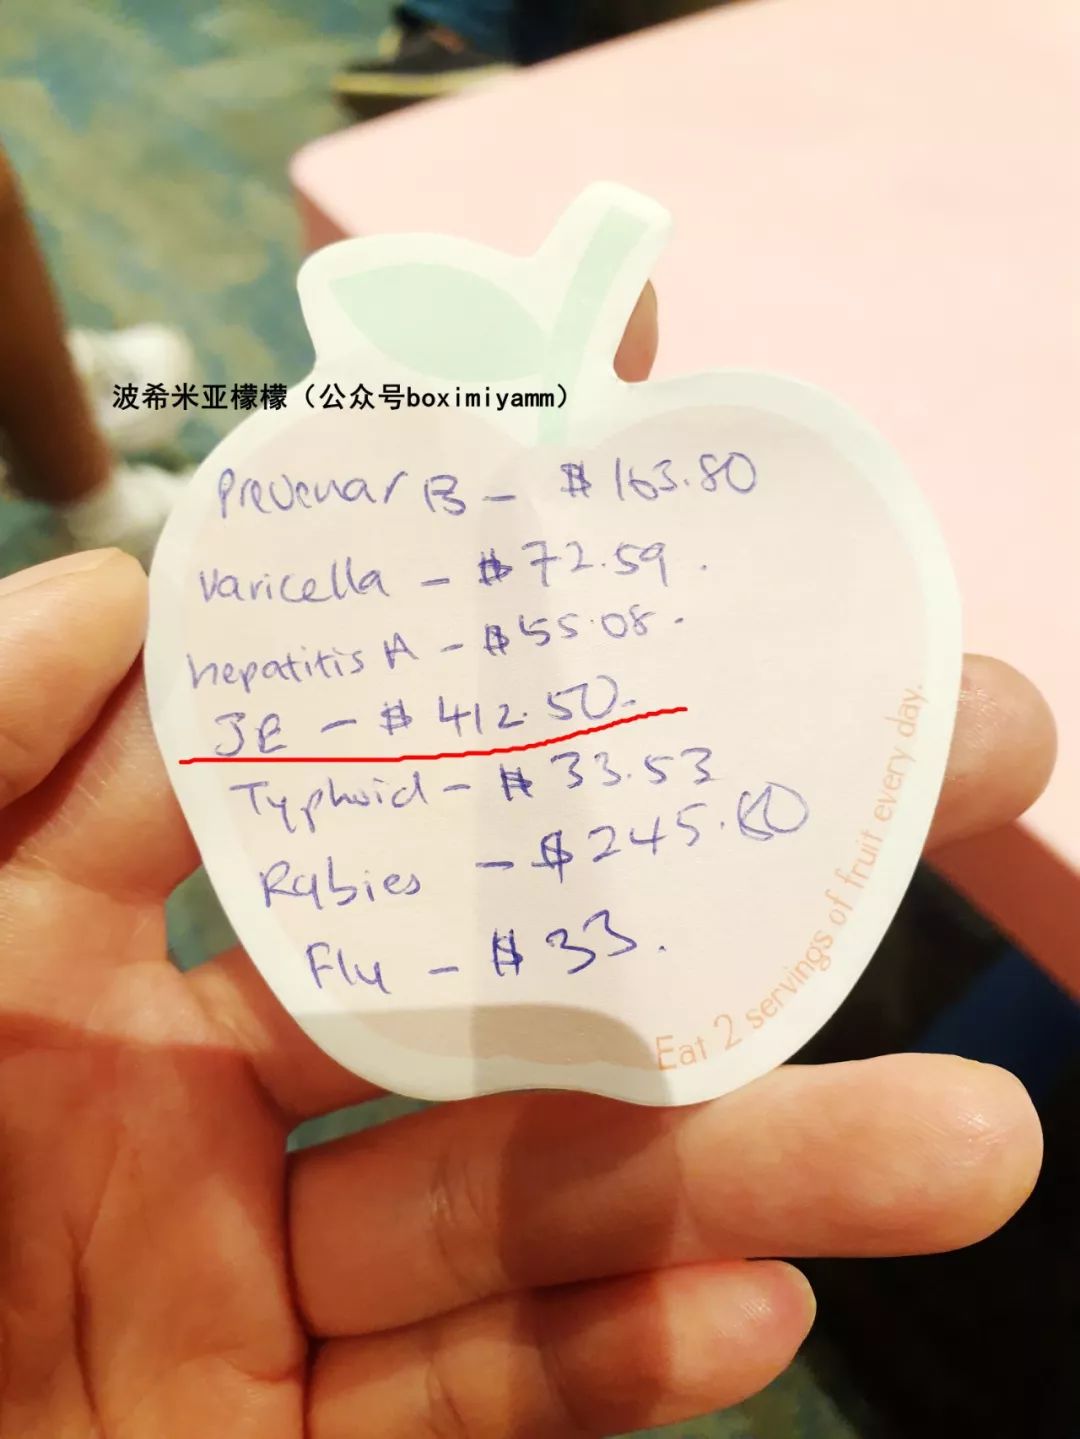 波希米亚檬檬（公众号boximiyamm）
Prevenar 13 - $163.80
Varicella - $72.59.
hepatitis A - $55.08.
JE - $412.50.
Typhoid - $33.53
Rabies - $245.60
Flu - $33.
Eat 2 servings of fruit every day.